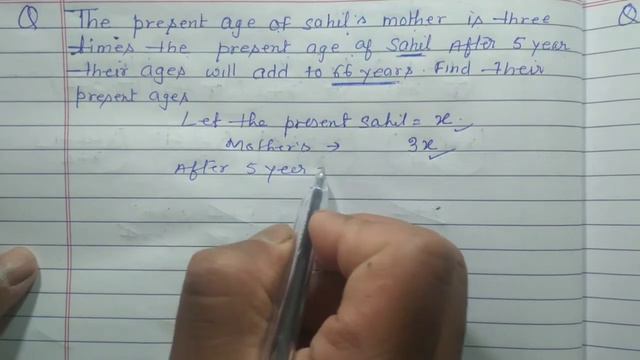 Q The present age of sahil's mother is three Q
times the present age of Sahil After 5 year
their ages will add to 66 years. Find their
present ages
Let the present sahil = x
Mother's → 3x
After 5 year